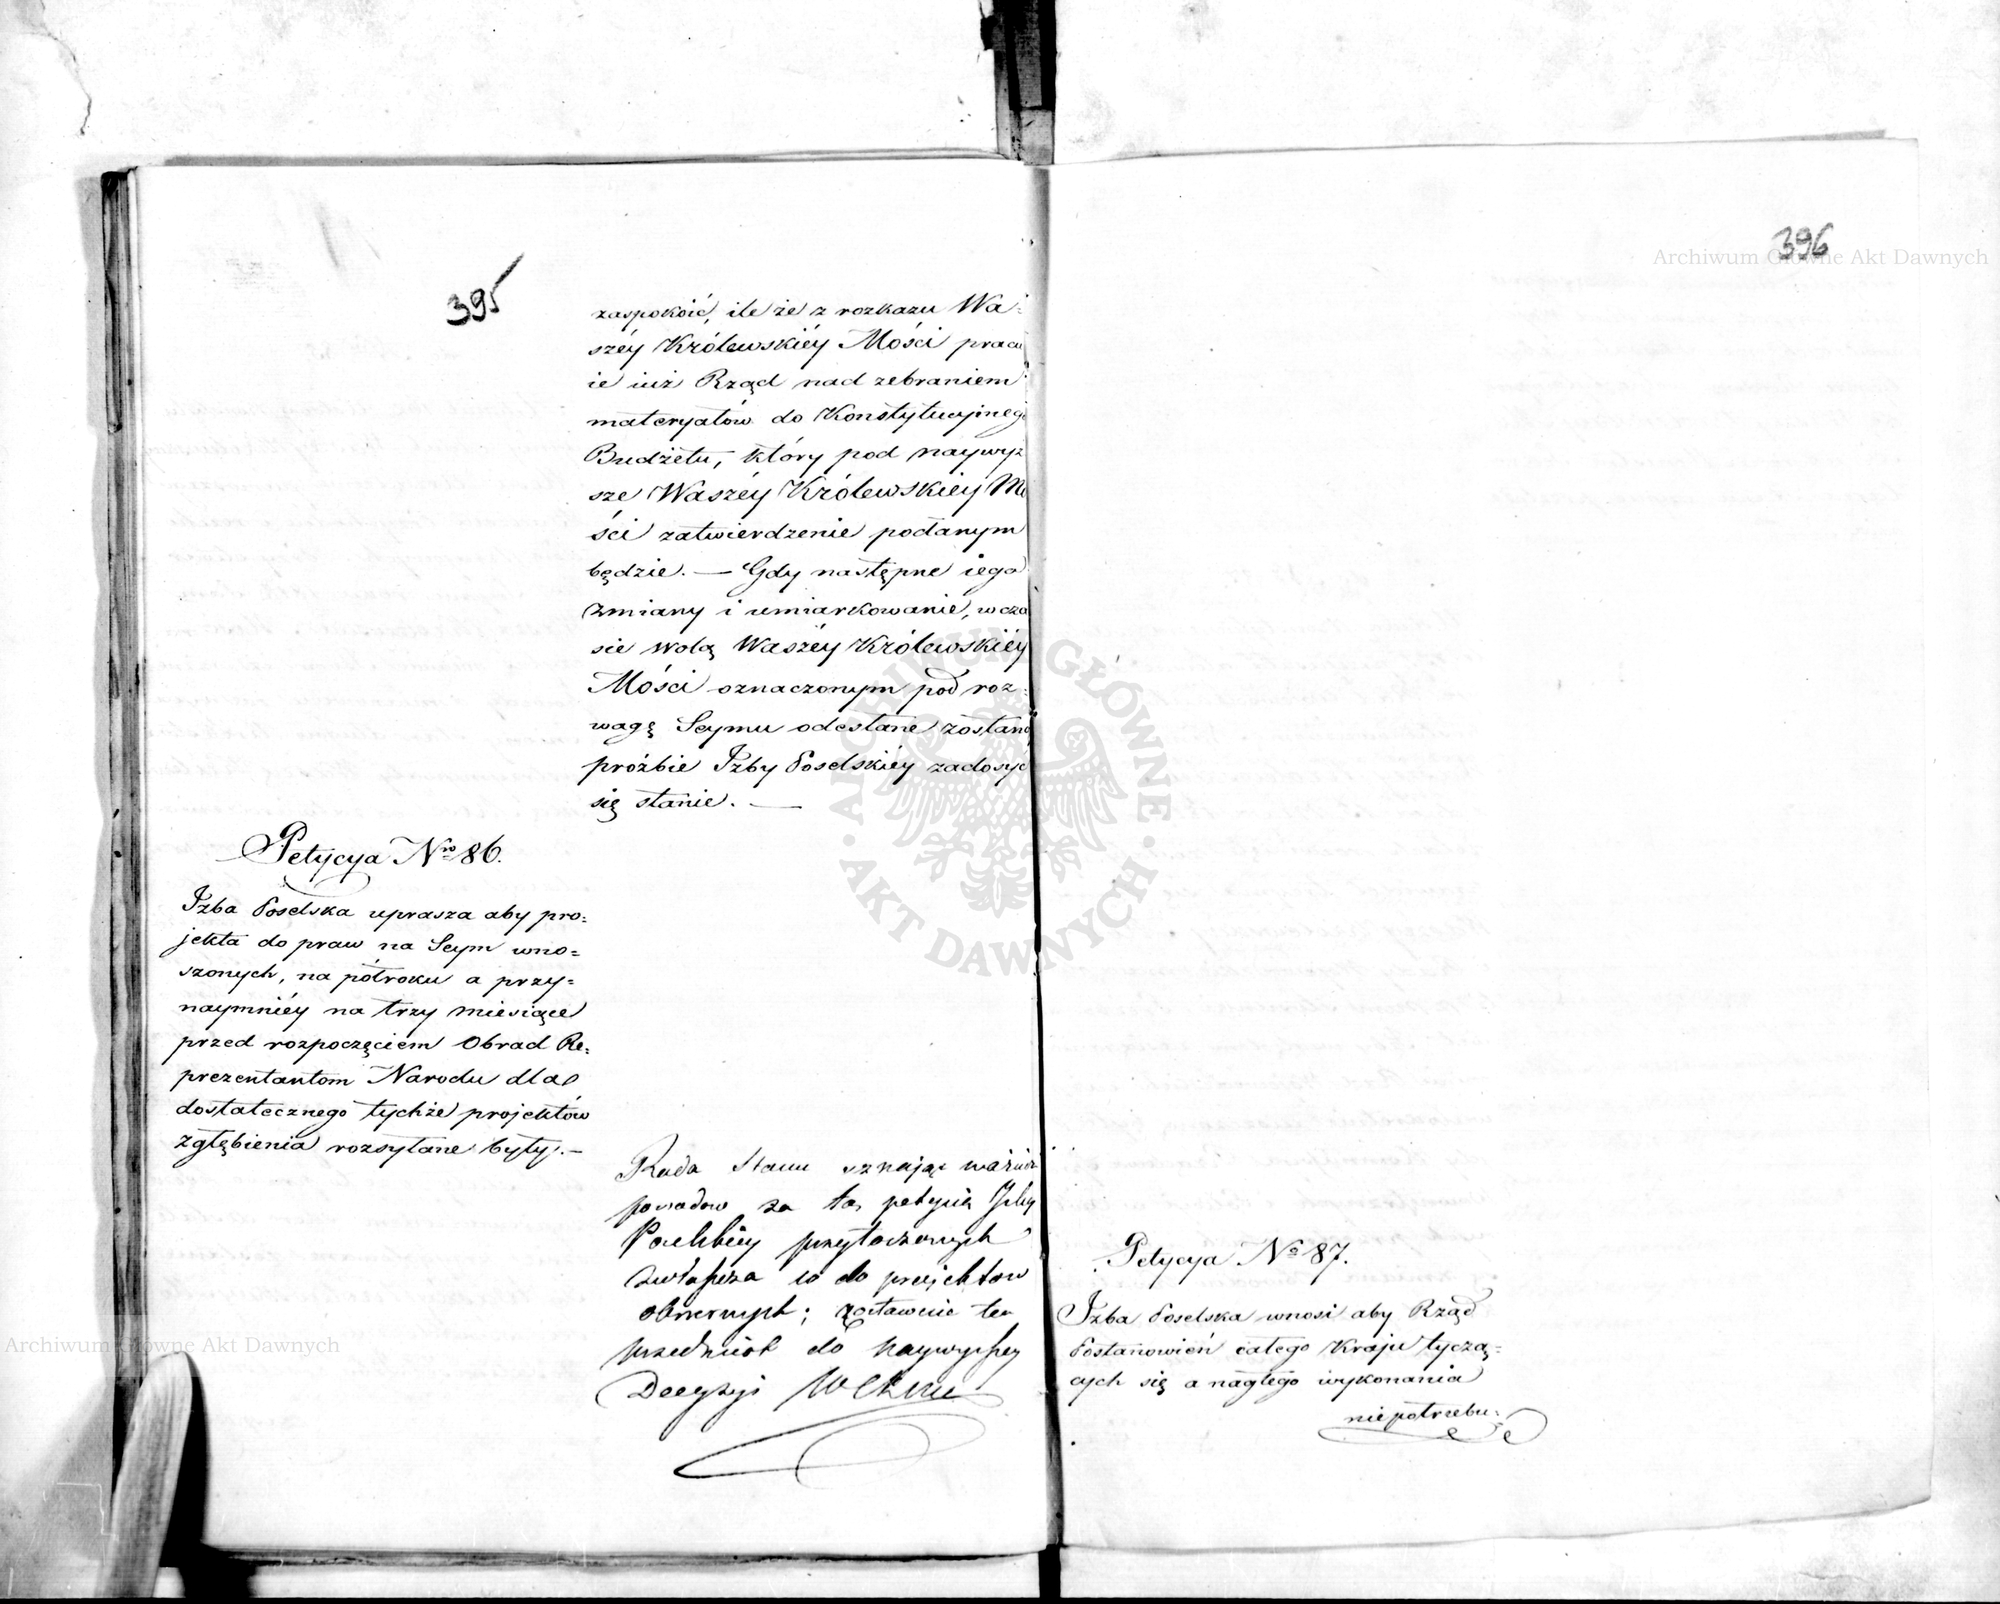 395
zaspokoić, ile że z rozkazu Wa-
széy Królewskiéy Mości pracu
ie iuż Rząd nad zebraniem
materyałów do Konstytucyinego
Budżetu, który pod naywyż
sze Waszéy Królewskiéy Mo
ści zatwierdzenie podanym
będzie. — Gdy następne iego
zmiany i umiarkowanie, w cza
sie wolą Waszéy Królewskiéy
Mości oznaczonym pod roz-
wagę Seymu odesłane zostaną
próżbie Izby Poselskiéy zadosyć
się stanie. —
Petycya Nro 86.
Izba Poselska uprasza aby pro-
jekta do praw na Seym wno-
szonych, na półroku a przy-
naymniéy na trzy miesiące
przed rozpoczęciem Obrad Re-
prezentantom Narodu dla
dostatecznego tychże projektów
zgłębienia rozsyłane były. —
Rada Stanu uznając ważność
powodow za tą petycią Izby
Poselskiey przytoczonych
zwłaszcza co do projektow
obszernych; zostawuie ten
przedmiot do naywyższey
Decyzyi WKMci
396
Petycya No 87.
Izba Poselska wnosi aby Rząd
Postanowień całego Kraju tyczą-
cych się a nagłego wykonania
niepotrzebu-
Archiwum Główne Akt Dawnych
Archiwum Główne Akt Dawnych
ARCHIWUM GŁÓWNE
AKT DAWNYCH